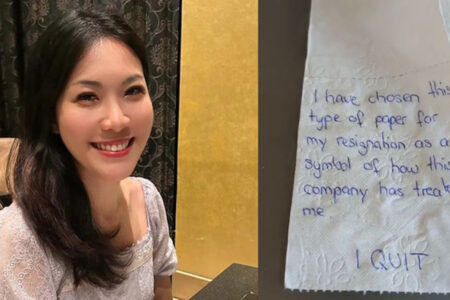 I have chosen this
type of paper for
my resignation as a
symbol of how this
company has
me
I QUIT